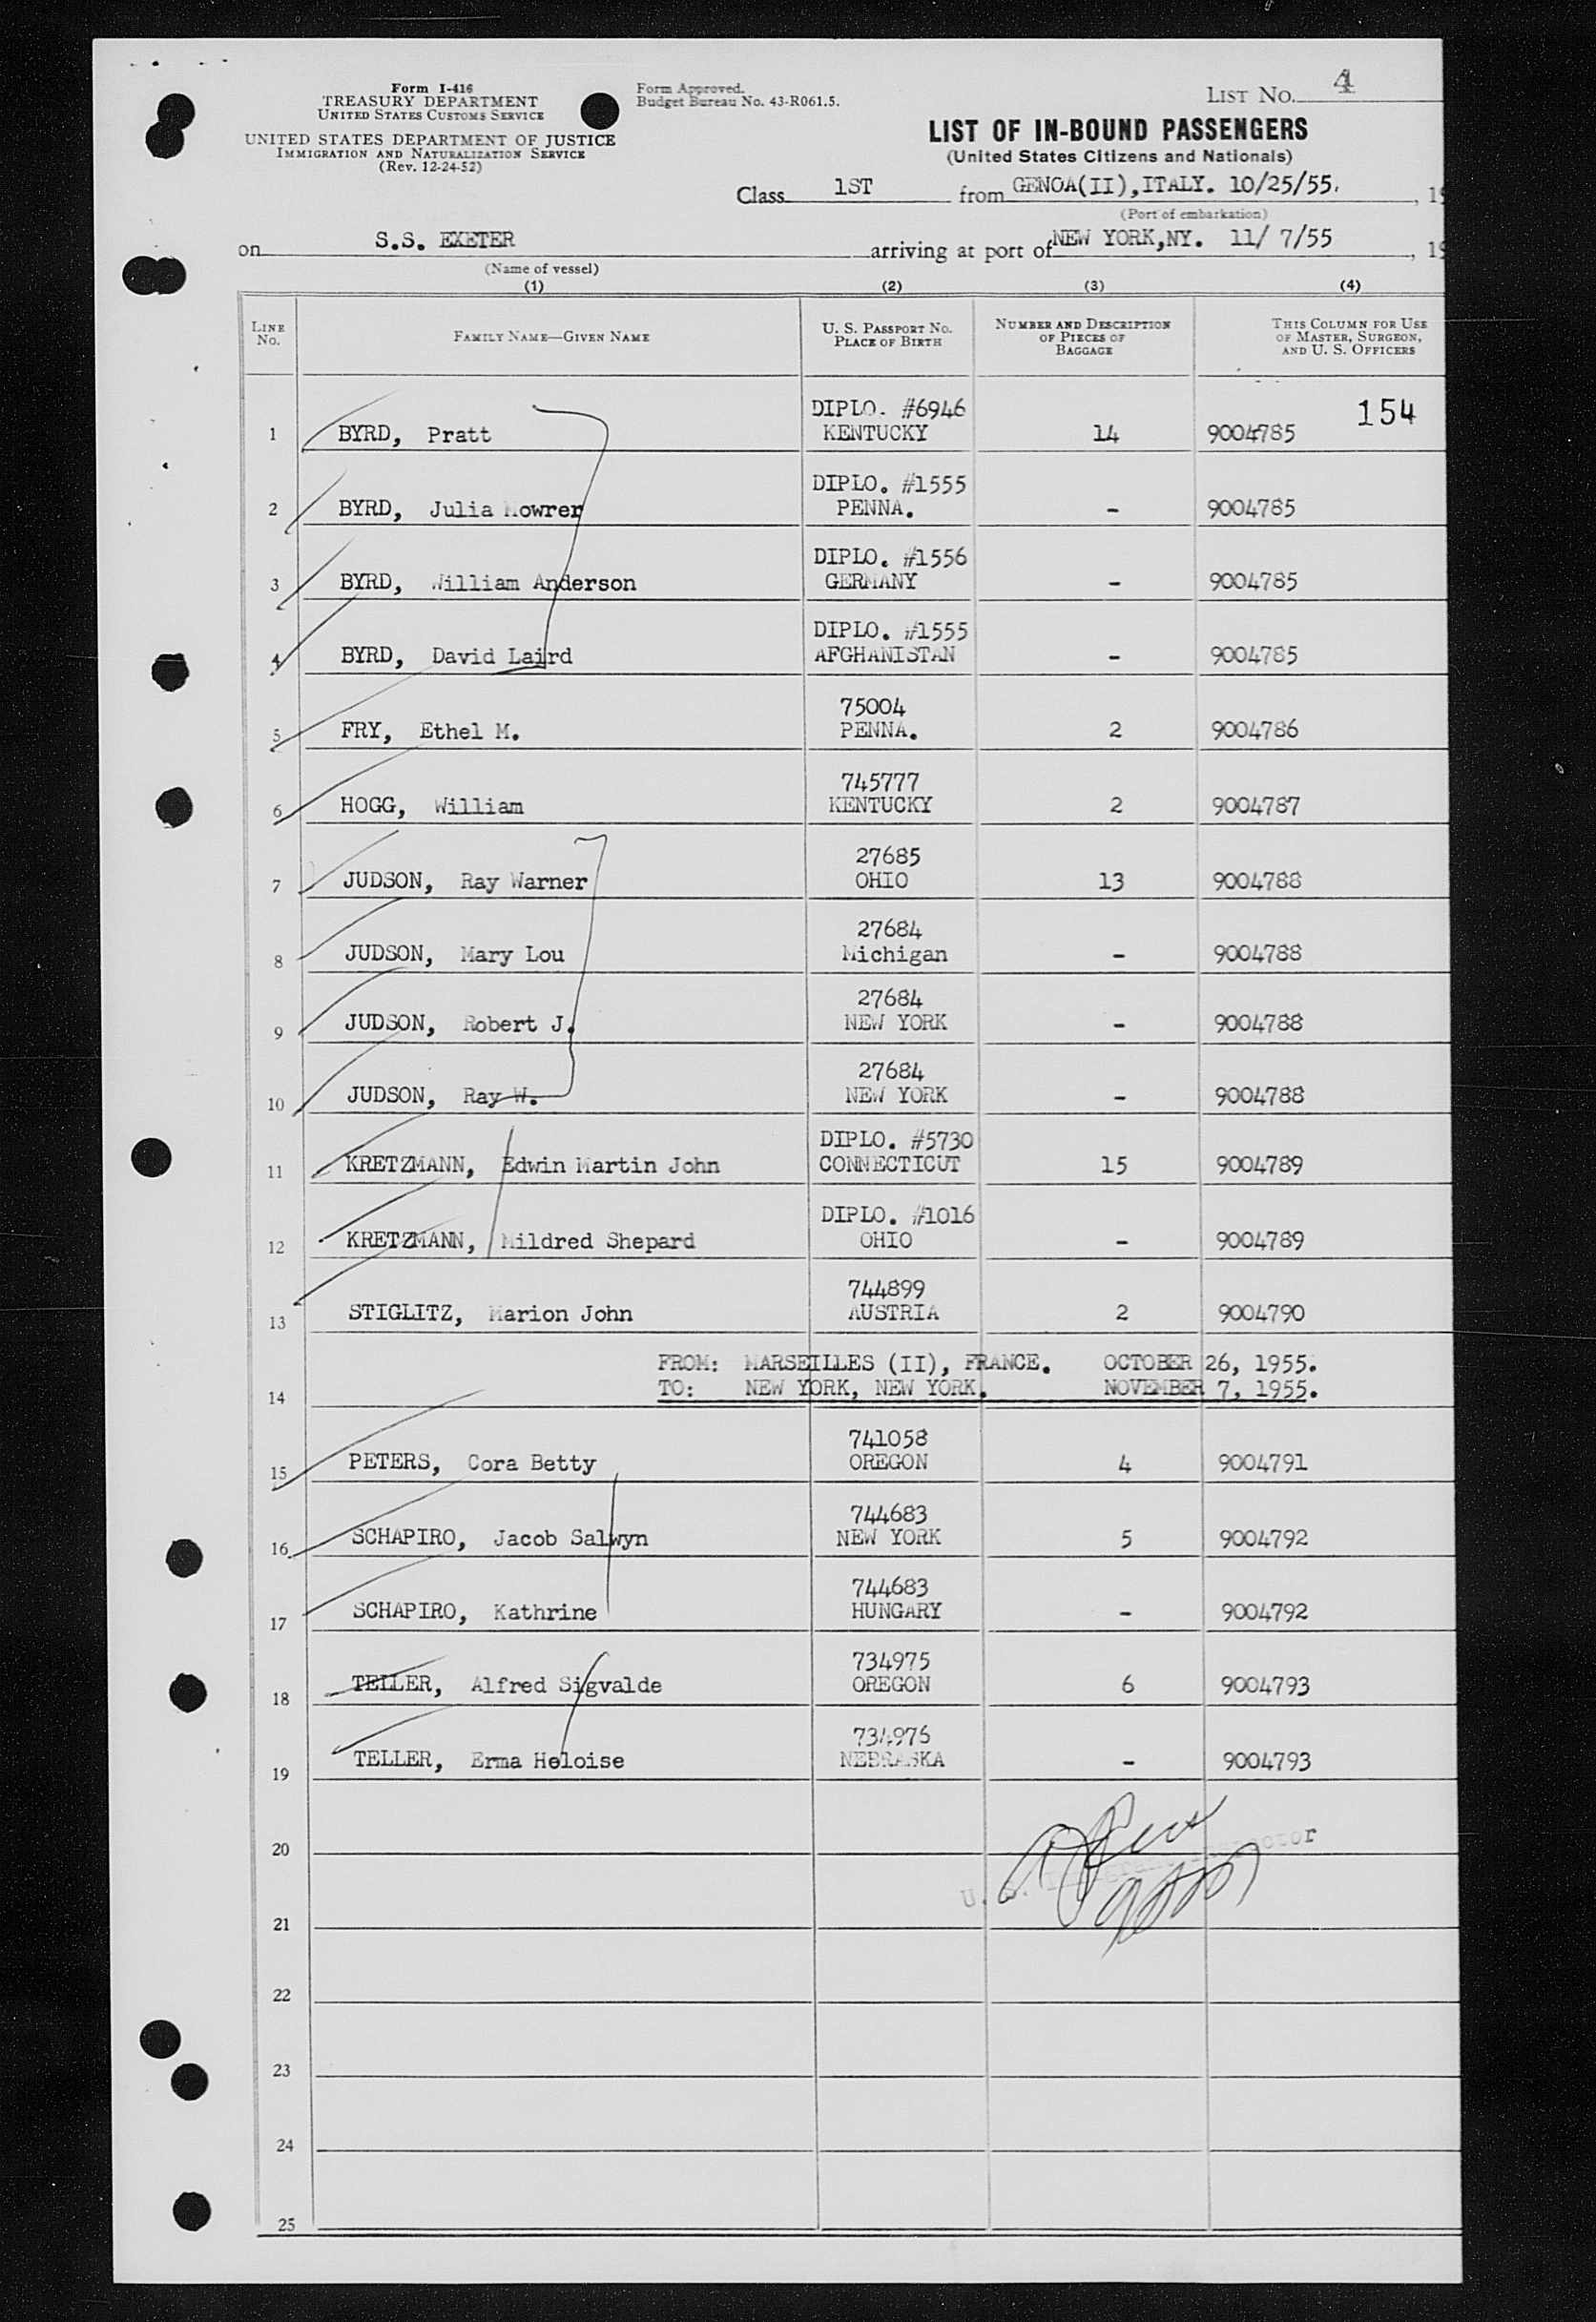 Form I-416
TREASURY DEPARTMENT
UNITED STATES CUSTOMS SERVICE
UNITED STATES DEPARTMENT OF JUSTICE
IMMIGRATION AND NATURALIZATION SERVICE
(Rev. 12-24-52)
Form Approved.
Budget Bureau No. 43-R061.5.
LIST NO. 4
LIST OF IN-BOUND PASSENGERS
(United States Citizens and Nationals)
Class 1ST from GENOA(II),ITALY. 10/25/55. , 19
(Port of embarkation)
on S.S. EXETER arriving at port of NEW YORK,NY. 11/ 7/55 , 19
(Name of vessel)
(1) (2) (3) (4)
LINE No. FAMILY NAME—GIVEN NAME U. S. PASSPORT NO. PLACE OF BIRTH NUMBER AND DESCRIPTION OF PIECES OF BAGGAGE THIS COLUMN FOR USE OF MASTER, SURGEON, AND U. S. OFFICERS
154
DIPLO. #6946
1 BYRD, Pratt KENTUCKY 14 9004785
DIPLO. #1555
2 BYRD, Julia Mowrer PENNA. - 9004785
DIPLO. #1556
3 BYRD, William Anderson GERMANY - 9004785
DIPLO. #1555
4 BYRD, David Laird AFGHANISTAN - 9004785
75004
5 FRY, Ethel M. PENNA. 2 9004786
745777
6 HOGG, William KENTUCKY 2 9004787
27685
7 JUDSON, Ray Warner OHIO 13 9004788
27684
8 JUDSON, Mary Lou Michigan - 9004788
27684
9 JUDSON, Robert J. NEW YORK - 9004788
27684
10 JUDSON, Ray W. NEW YORK - 9004788
DIPLO. #5730
11 KRETZMANN, Edwin Martin John CONNECTICUT 15 9004789
DIPLO. #1016
12 KRETZMANN, Mildred Shepard OHIO - 9004789
744899
13 STIGLITZ, Marion John AUSTRIA 2 9004790
FROM: MARSEILLES (II), FRANCE. OCTOBER 26, 1955.
14 TO: NEW YORK, NEW YORK. NOVEMBER 7, 1955.
741058
15 PETERS, Cora Betty OREGON 4 9004791
744683
16 SCHAPIRO, Jacob Salwyn NEW YORK 5 9004792
744683
17 SCHAPIRO, Kathrine HUNGARY - 9004792
734975
18 TELLER, Alfred Sigvalde OREGON 6 9004793
734976
19 TELLER, Erma Heloise NEBRASKA - 9004793
20
U. S.
21
22
23
24
25